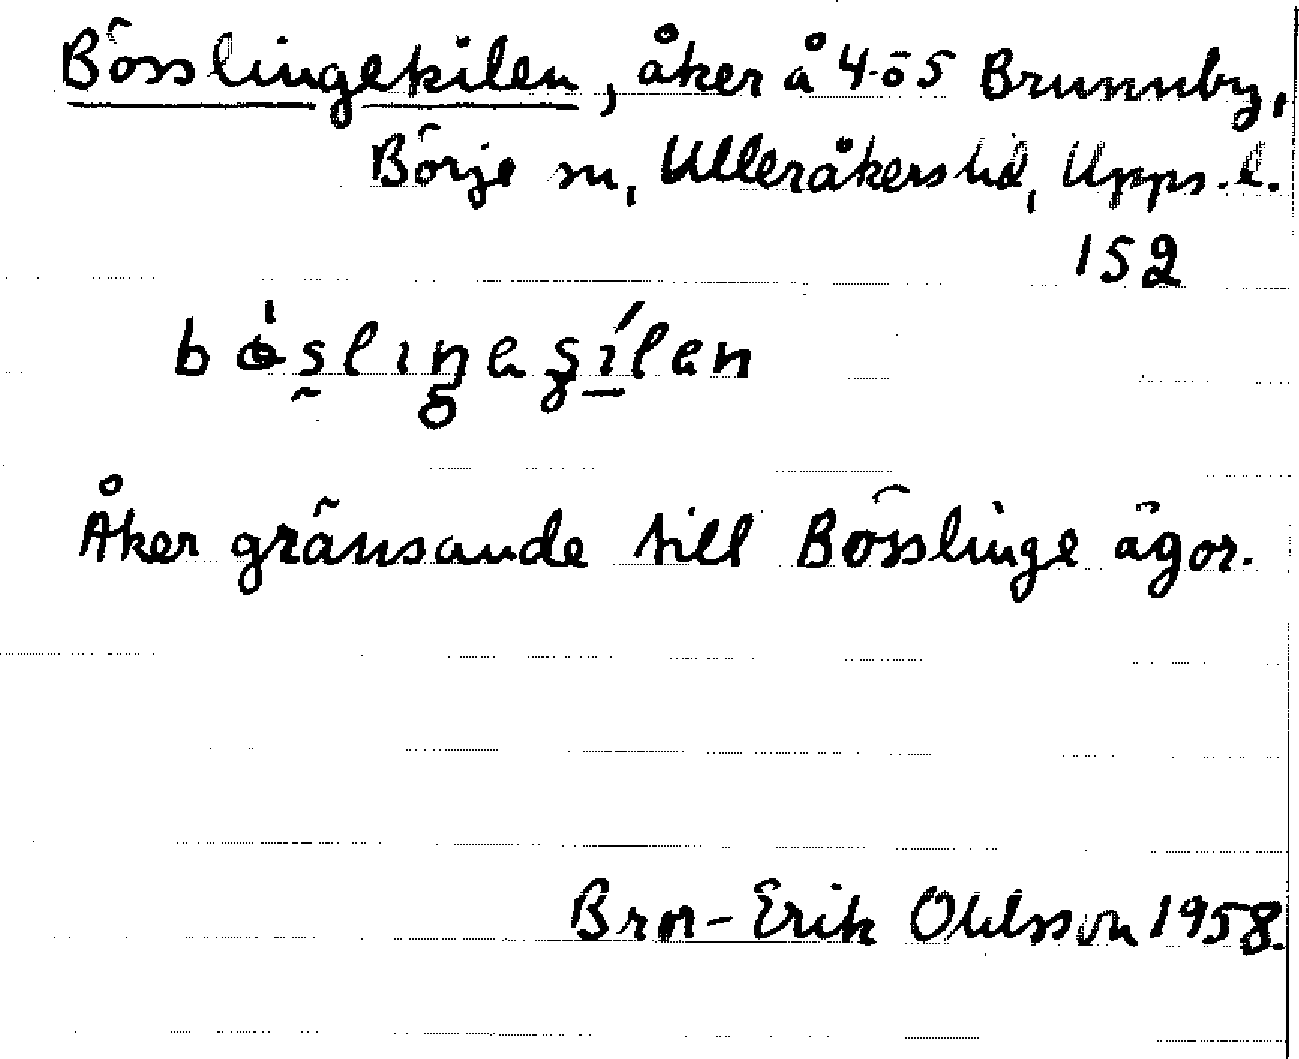 Bösslingekilen, åker å 4 o 5 Brunnby,
Börje sn, Ulleråkers hd, Upps. l.
152
Åker gränsande till Bösslinge ägor.
Bror-Erik Ohlsson 1958.